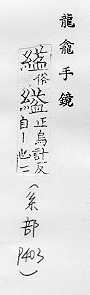 龍龕手鏡
俗縊正烏計反
自丨也二
(糸部 P403)